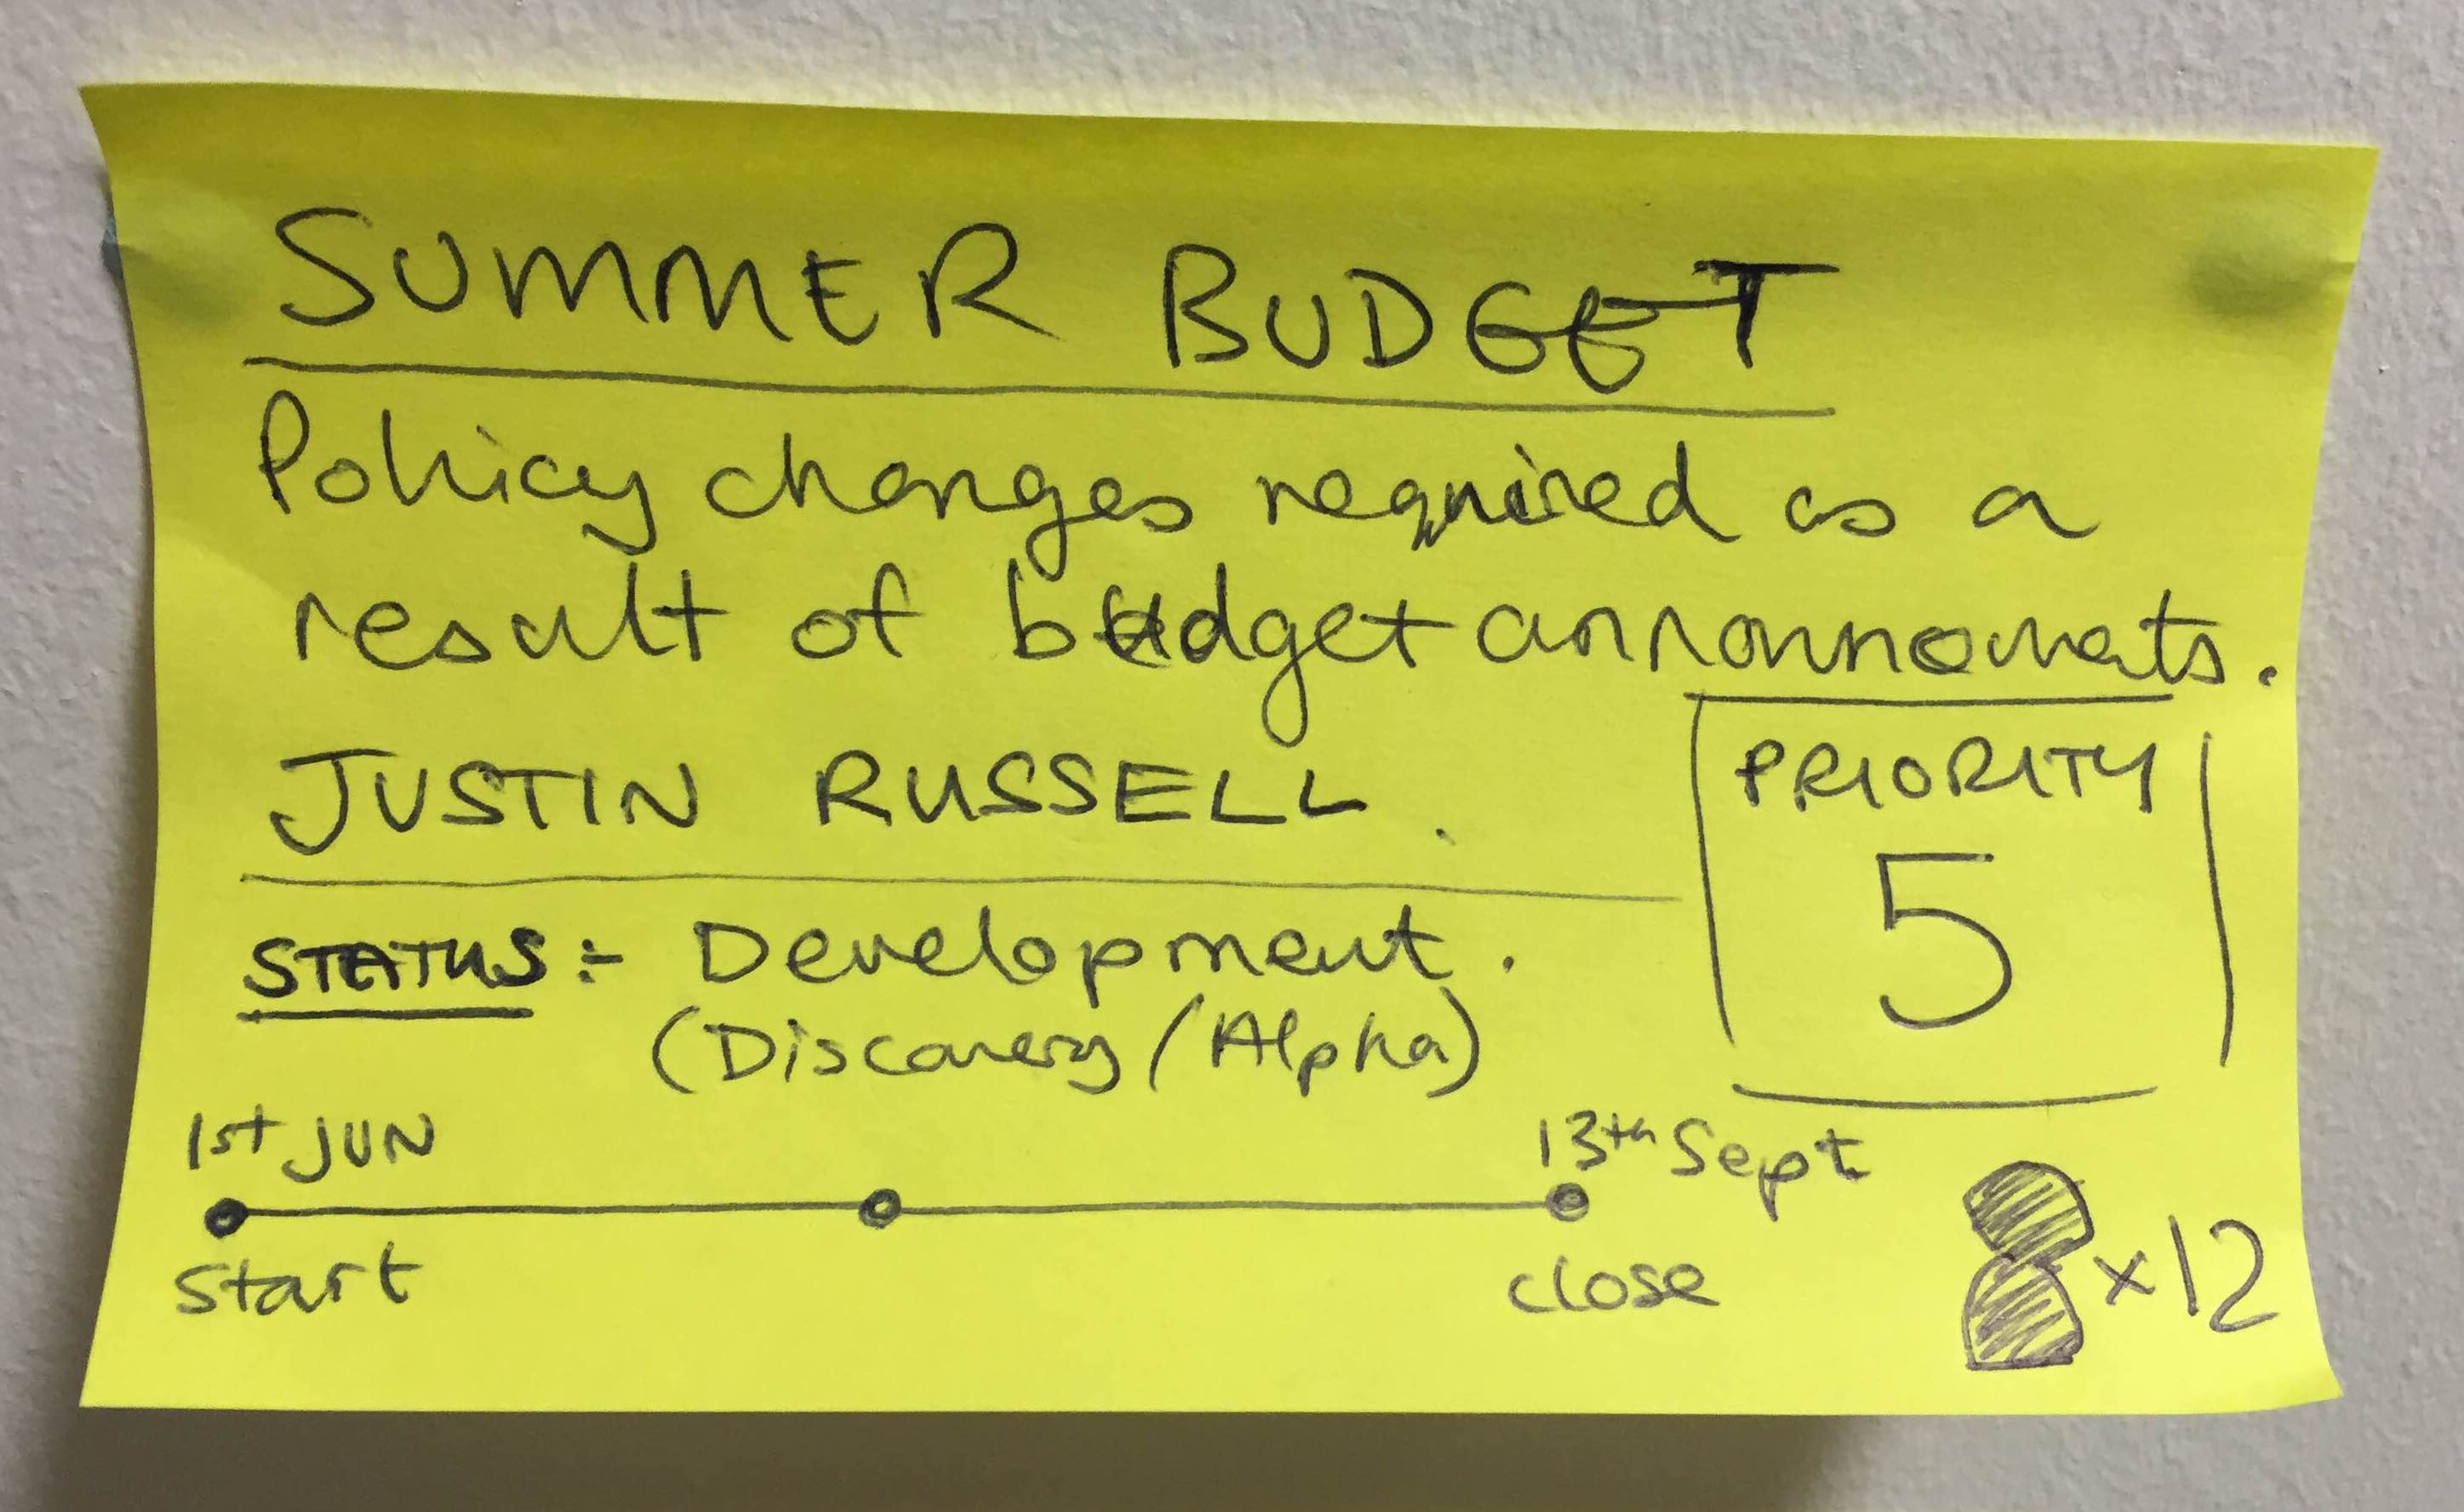 SUMMER BUDGET
Policy changes required as a
result of budget annonnomats.
JUSTIN RUSSELL.
PRIORITY
5
STATUS:- Development.
(Discovery/Alpha)
1st JUN
13th Sept
Start
close
x12